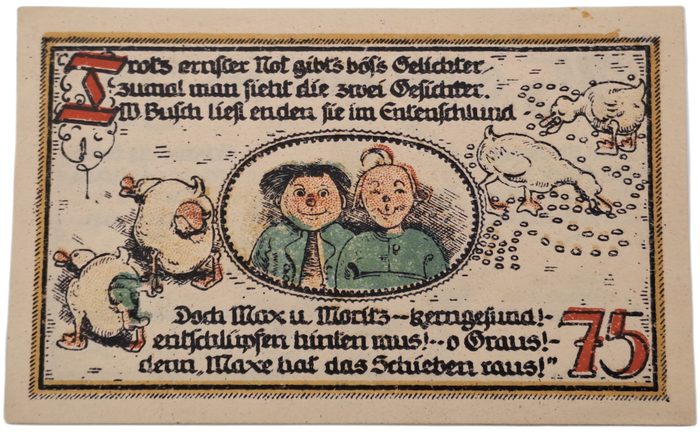 Trotz ernster Not gibt's bös's Gelichter,
zumal man sieht die zwei Gesichter.
W Busch ließ enden sie im Entenschlund
Doch Max u. Moritz - kerngesund! -
entschlüpfen hinten raus! - o Graus! -
denn „Maxe hat das Schieben raus!"
75